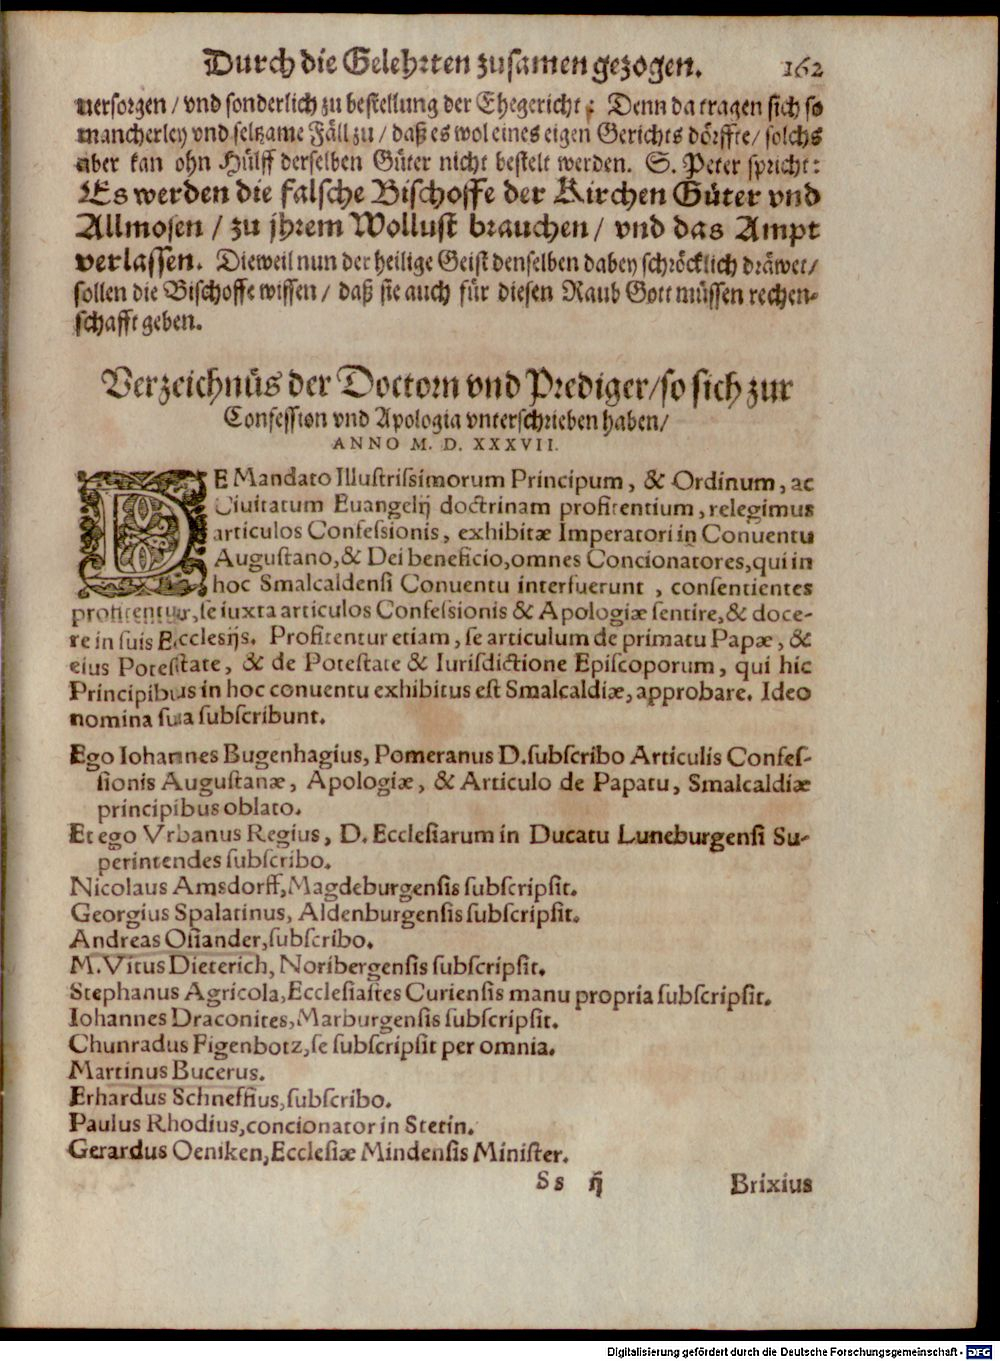 Durch die Gelehrten zusamen gezogen. 162
uersorgen / vnd sonderlich zu bestellung der Ehegericht: Denn da tragen sich so
mancherley vnd seltzame Fäll zu / daß es wol eines eigen Gerichts dörffte / solchs
aber kan ohn Hülff derselben Güter nicht bestelt werden. S. Peter spricht:
Es werden die falsche Bischoffe der Kirchen Güter vnd
Allmosen / zu jhrem Wollust brauchen / vnd das Ampt
verlassen. Dieweil nun der heilige Geist denselben dabey schröcklich dräwet /
sollen die Bischoffe wissen / daß sie auch für diesen Raub Gott müssen rechen-
schafft geben.
Verzeichnüs der Doctorn vnd Prediger / so sich zur
Confession vnd Apologia vnterschrieben haben /
ANNO M. D. XXXVII.
DE Mandato Illustrissimorum Principum, & Ordinum, ac
Ciuitatum Euangelij doctrinam profitentium, relegimus
articulos Confessionis, exhibitæ Imperatori in Conuentu
Augustano, & Dei beneficio, omnes Concionatores, qui in
hoc Smalcaldensi Conuentu interfuerunt, consentientes
profitentur, se iuxta articulos Confessionis & Apologiæ sentire, & doce-
re in suis Ecclesijs. Profitentur etiam, se articulum de primatu Papæ, &
eius Potestate, & de Potestate & Iurisdictione Episcoporum, qui hic
Principibus in hoc conuentu exhibitus est Smalcaldiæ, approbare. Ideo
nomina sua subscribunt.
Ego Iohannes Bugenhagius, Pomeranus D. subscribo Articulis Confes-
sionis Augustanæ, Apologiæ, & Articulo de Papatu, Smalcaldiæ
principibus oblato.
Et ego Vrbanus Regius, D. Ecclesiarum in Ducatu Luneburgensi Su-
perintendes subscribo.
Nicolaus Amsdorff, Magdeburgensis subscripsit.
Georgius Spalatinus, Aldenburgensis subscripsit.
Andreas Osiander, subscribo.
M. Vitus Dieterich, Noribergensis subscripsit.
Stephanus Agricola, Ecclesiastes Curiensis manu propria subscripsit.
Iohannes Draconites, Marburgensis subscripsit.
Chunradus Figenbotz, se subscripsit per omnia.
Martinus Bucerus.
Erhardus Schneffius, subscribo.
Paulus Rhodius, concionator in Stetin.
Gerardus Oeniken, Ecclesiæ Mindensis Minister.
Ss ij Brixius
Digitalisierung gefördert durch die Deutsche Forschungsgemeinschaft - DFG